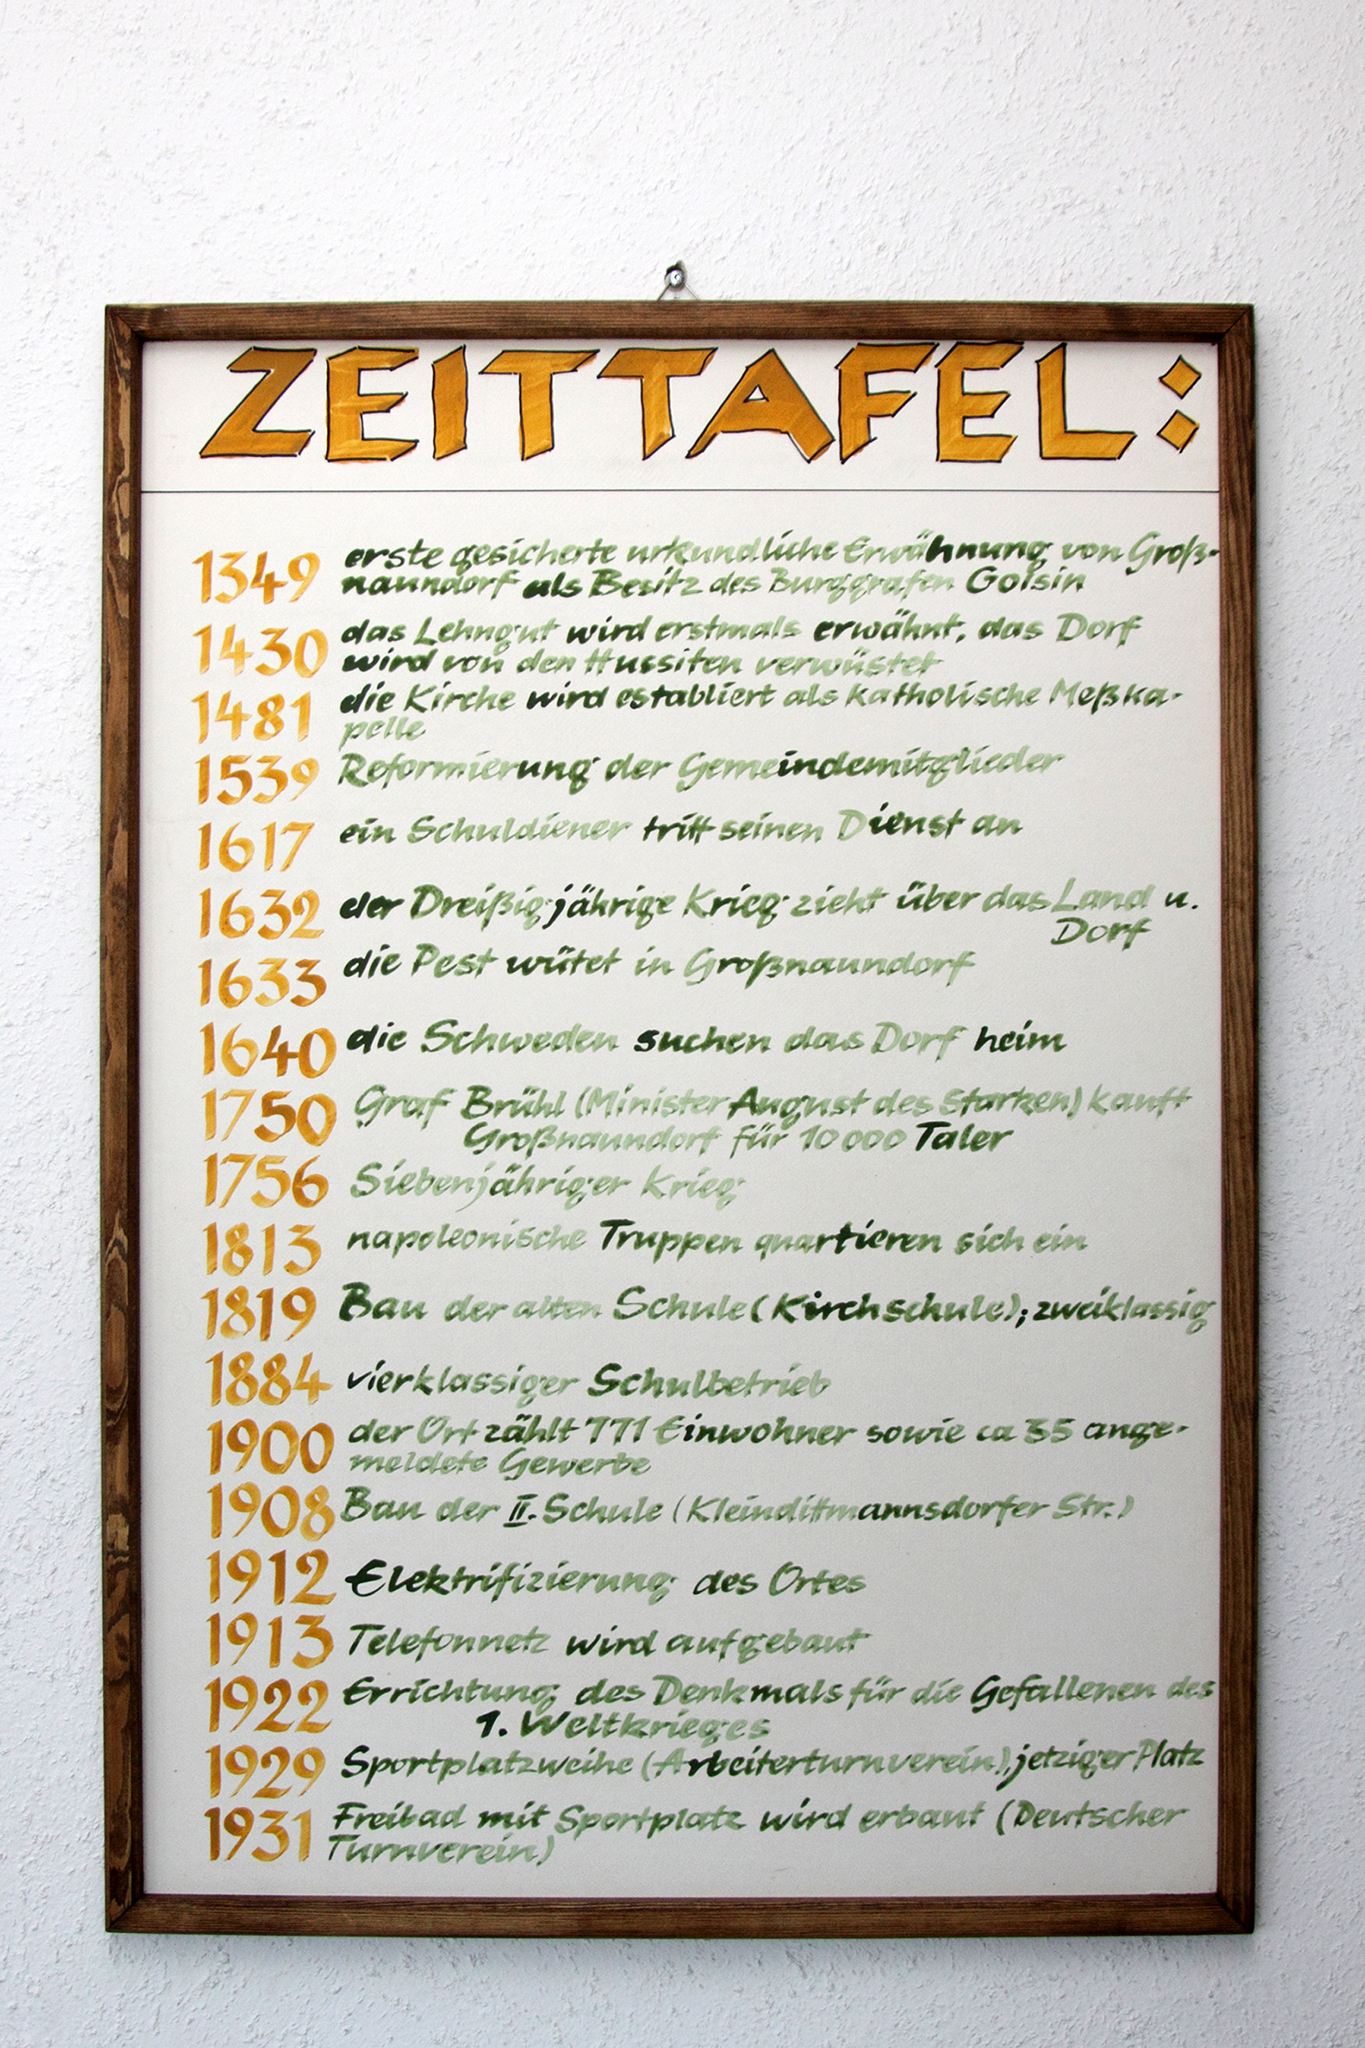 ZEITTAFEL:
1349 erste gesicherte urkundliche Erwähnung von Groß-
naundorf als Besitz des Burggrafen Golsin
1430 das Lehngut wird erstmals erwähnt, das Dorf
wird von den Hussiten verwüstet
1481 die Kirche wird establiert als katholische Meßka-
pelle
1539 Reformierung der Gemeindemitglieder
1617 ein Schuldiener tritt seinen Dienst an
1632 der Dreißigjährige Krieg zieht über das Land u.
Dorf
1633 die Pest wütet in Großnaundorf
1640 die Schweden suchen das Dorf heim
1750 Graf Brühl (Minister August des Starken) kauft
Großnaundorf für 10 000 Taler
1756 Siebenjähriger Krieg
1813 napoleonische Truppen quartieren sich ein
1819 Bau der alten Schule (Kirchschule); zweiklassig
1884 vierklassiger Schulbetrieb
1900 der Ort zählt 771 Einwohner sowie ca 35 ange-
meldete Gewerbe
1908 Bau der II. Schule (Kleindittmannsdorfer Str.)
1912 Elektrifizierung des Ortes
1913 Telefonnetz wird aufgebaut
1922 Errichtung des Denkmals für die Gefallenen des
1. Weltkrieges
1929 Sportplatzweihe (Arbeiterturnverein), jetziger Platz
1931 Freibad mit Sportplatz wird erbaut (Deutscher
Turnverein)